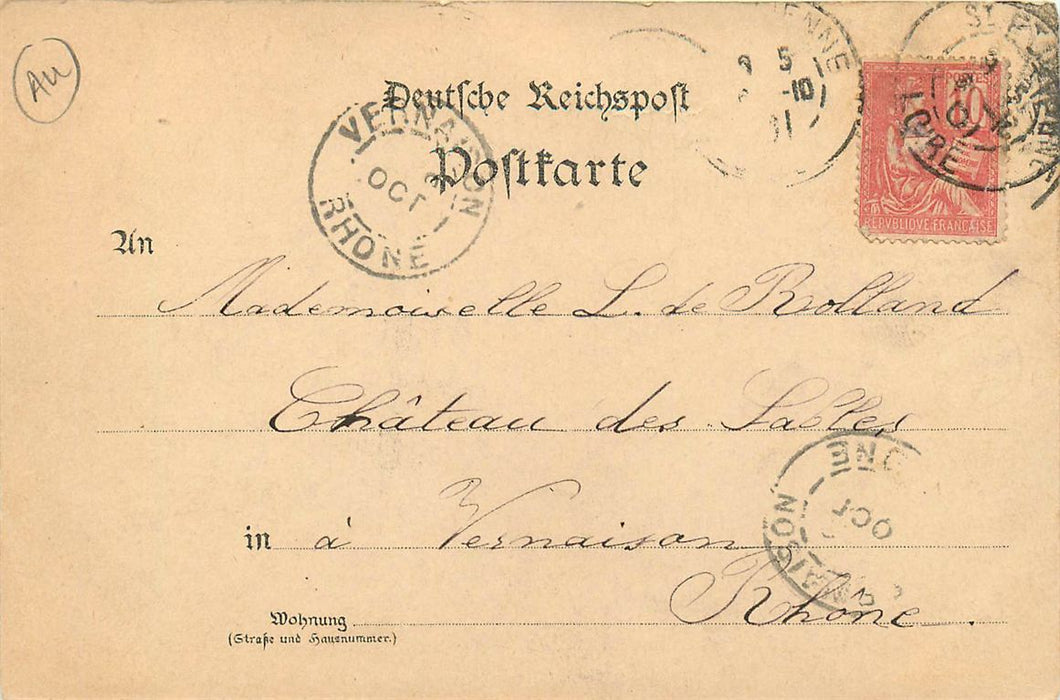 AU
Deutsche Reichspost
Postkarte
An
VERNAISON
OCT
RHONE
5
-10
LOIRE
POSTES
10
REPVBLIQVE FRANÇAISE
Mademoiselle L. de Rolland
Château des Sables
in à Vernaison
Rhône.
OCT
Wohnung
(Straße und Hausnummer.)